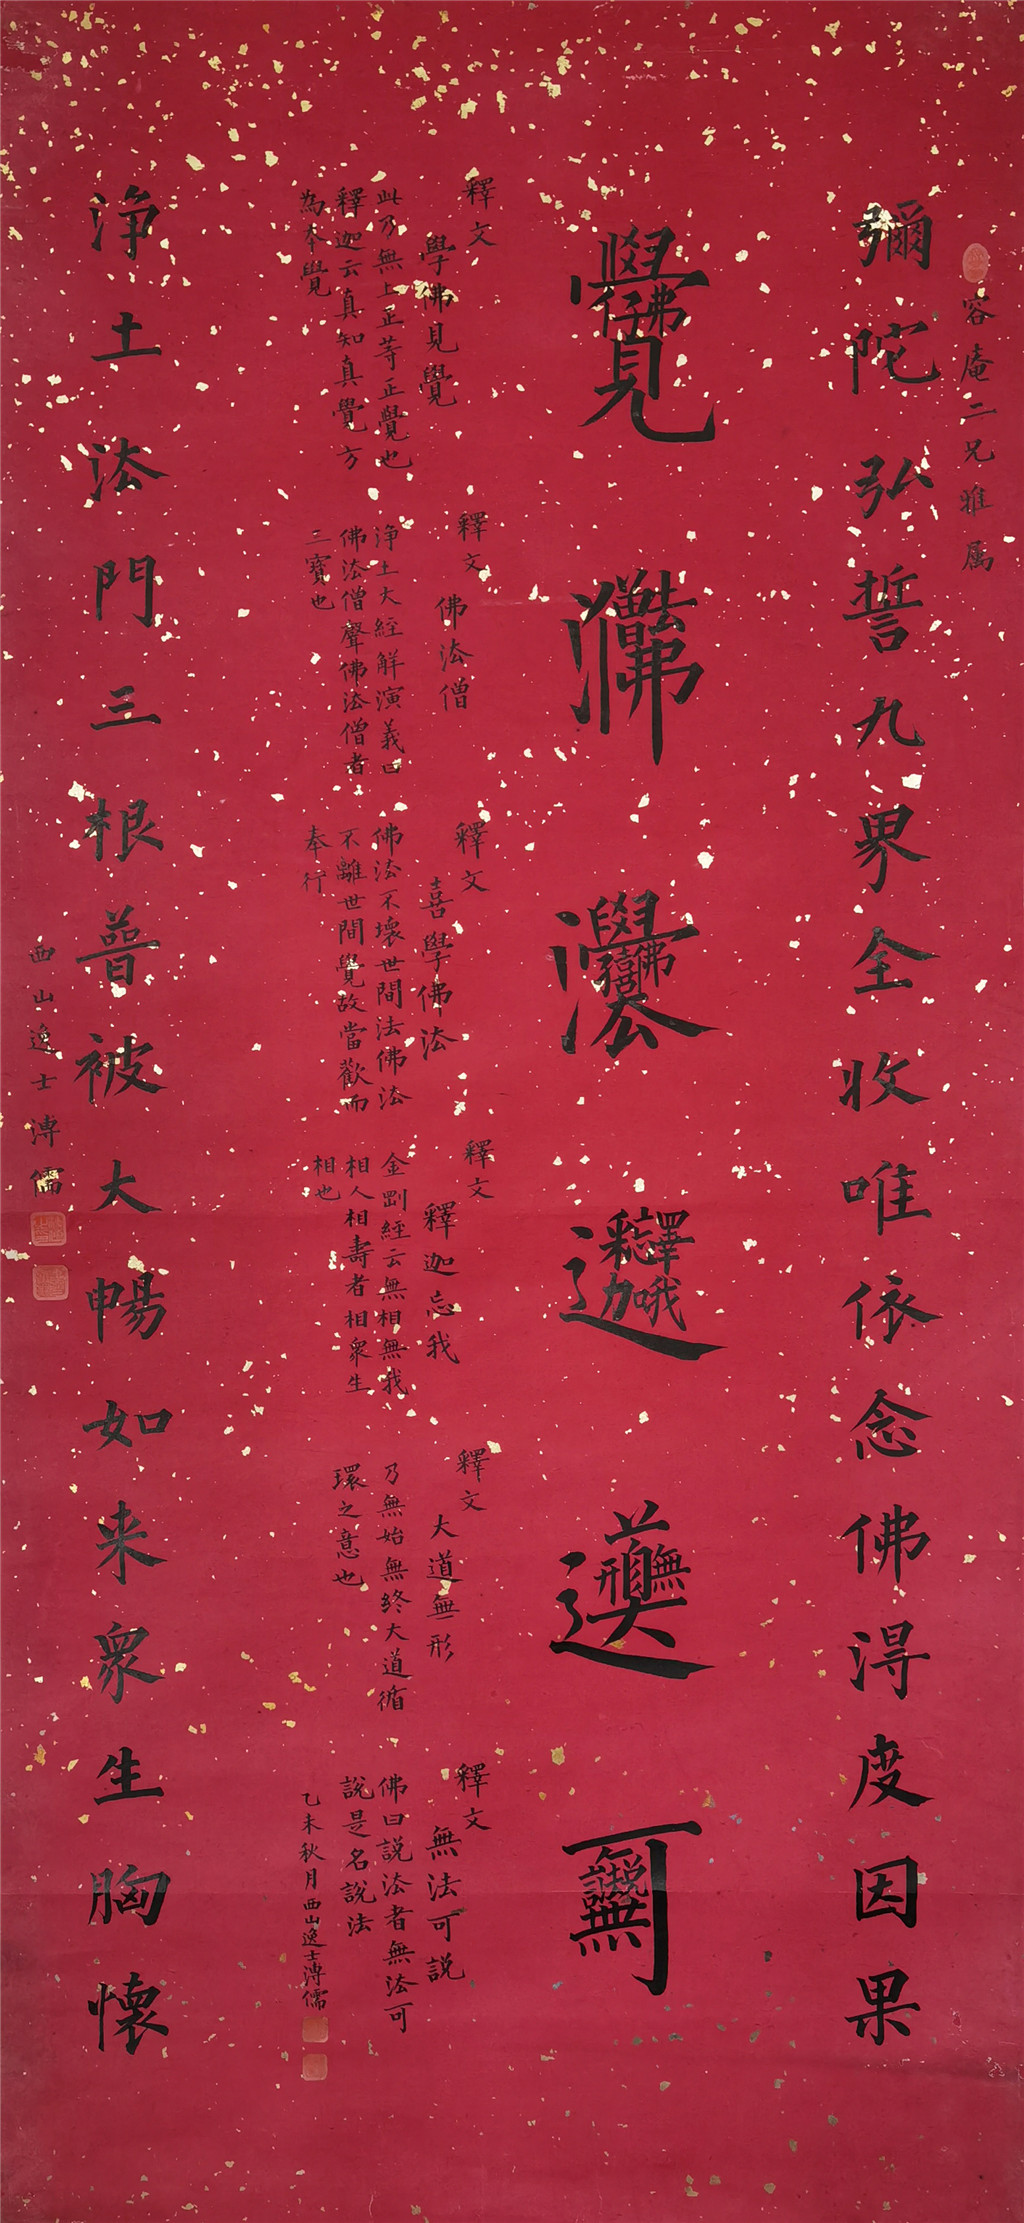 容庵二兄雅属
彌陀弘誓九界全收唯依念佛淂度因果
釋文
學佛見覺
此乃無上正等正覺也
釋迦云真知真覺方
為本覺
釋文
佛法僧
淨土大經解演義曰
佛法僧聲佛法僧者
三寶也
釋文
喜學佛法
佛法不壞世間法佛法
不離世間覺故當歡而
奉行
釋文
釋迦忘我
金剛經云無相無我
相人相壽者相眾生
相也
釋文
大道無形
乃無始無終大道循
環之意也
釋文
無法可説
佛曰説法者無法可
説是名説法
乙未秋月西山逸士溥儒
淨土法門三根普被大暢如来眾生胸懷
西山逸士溥儒